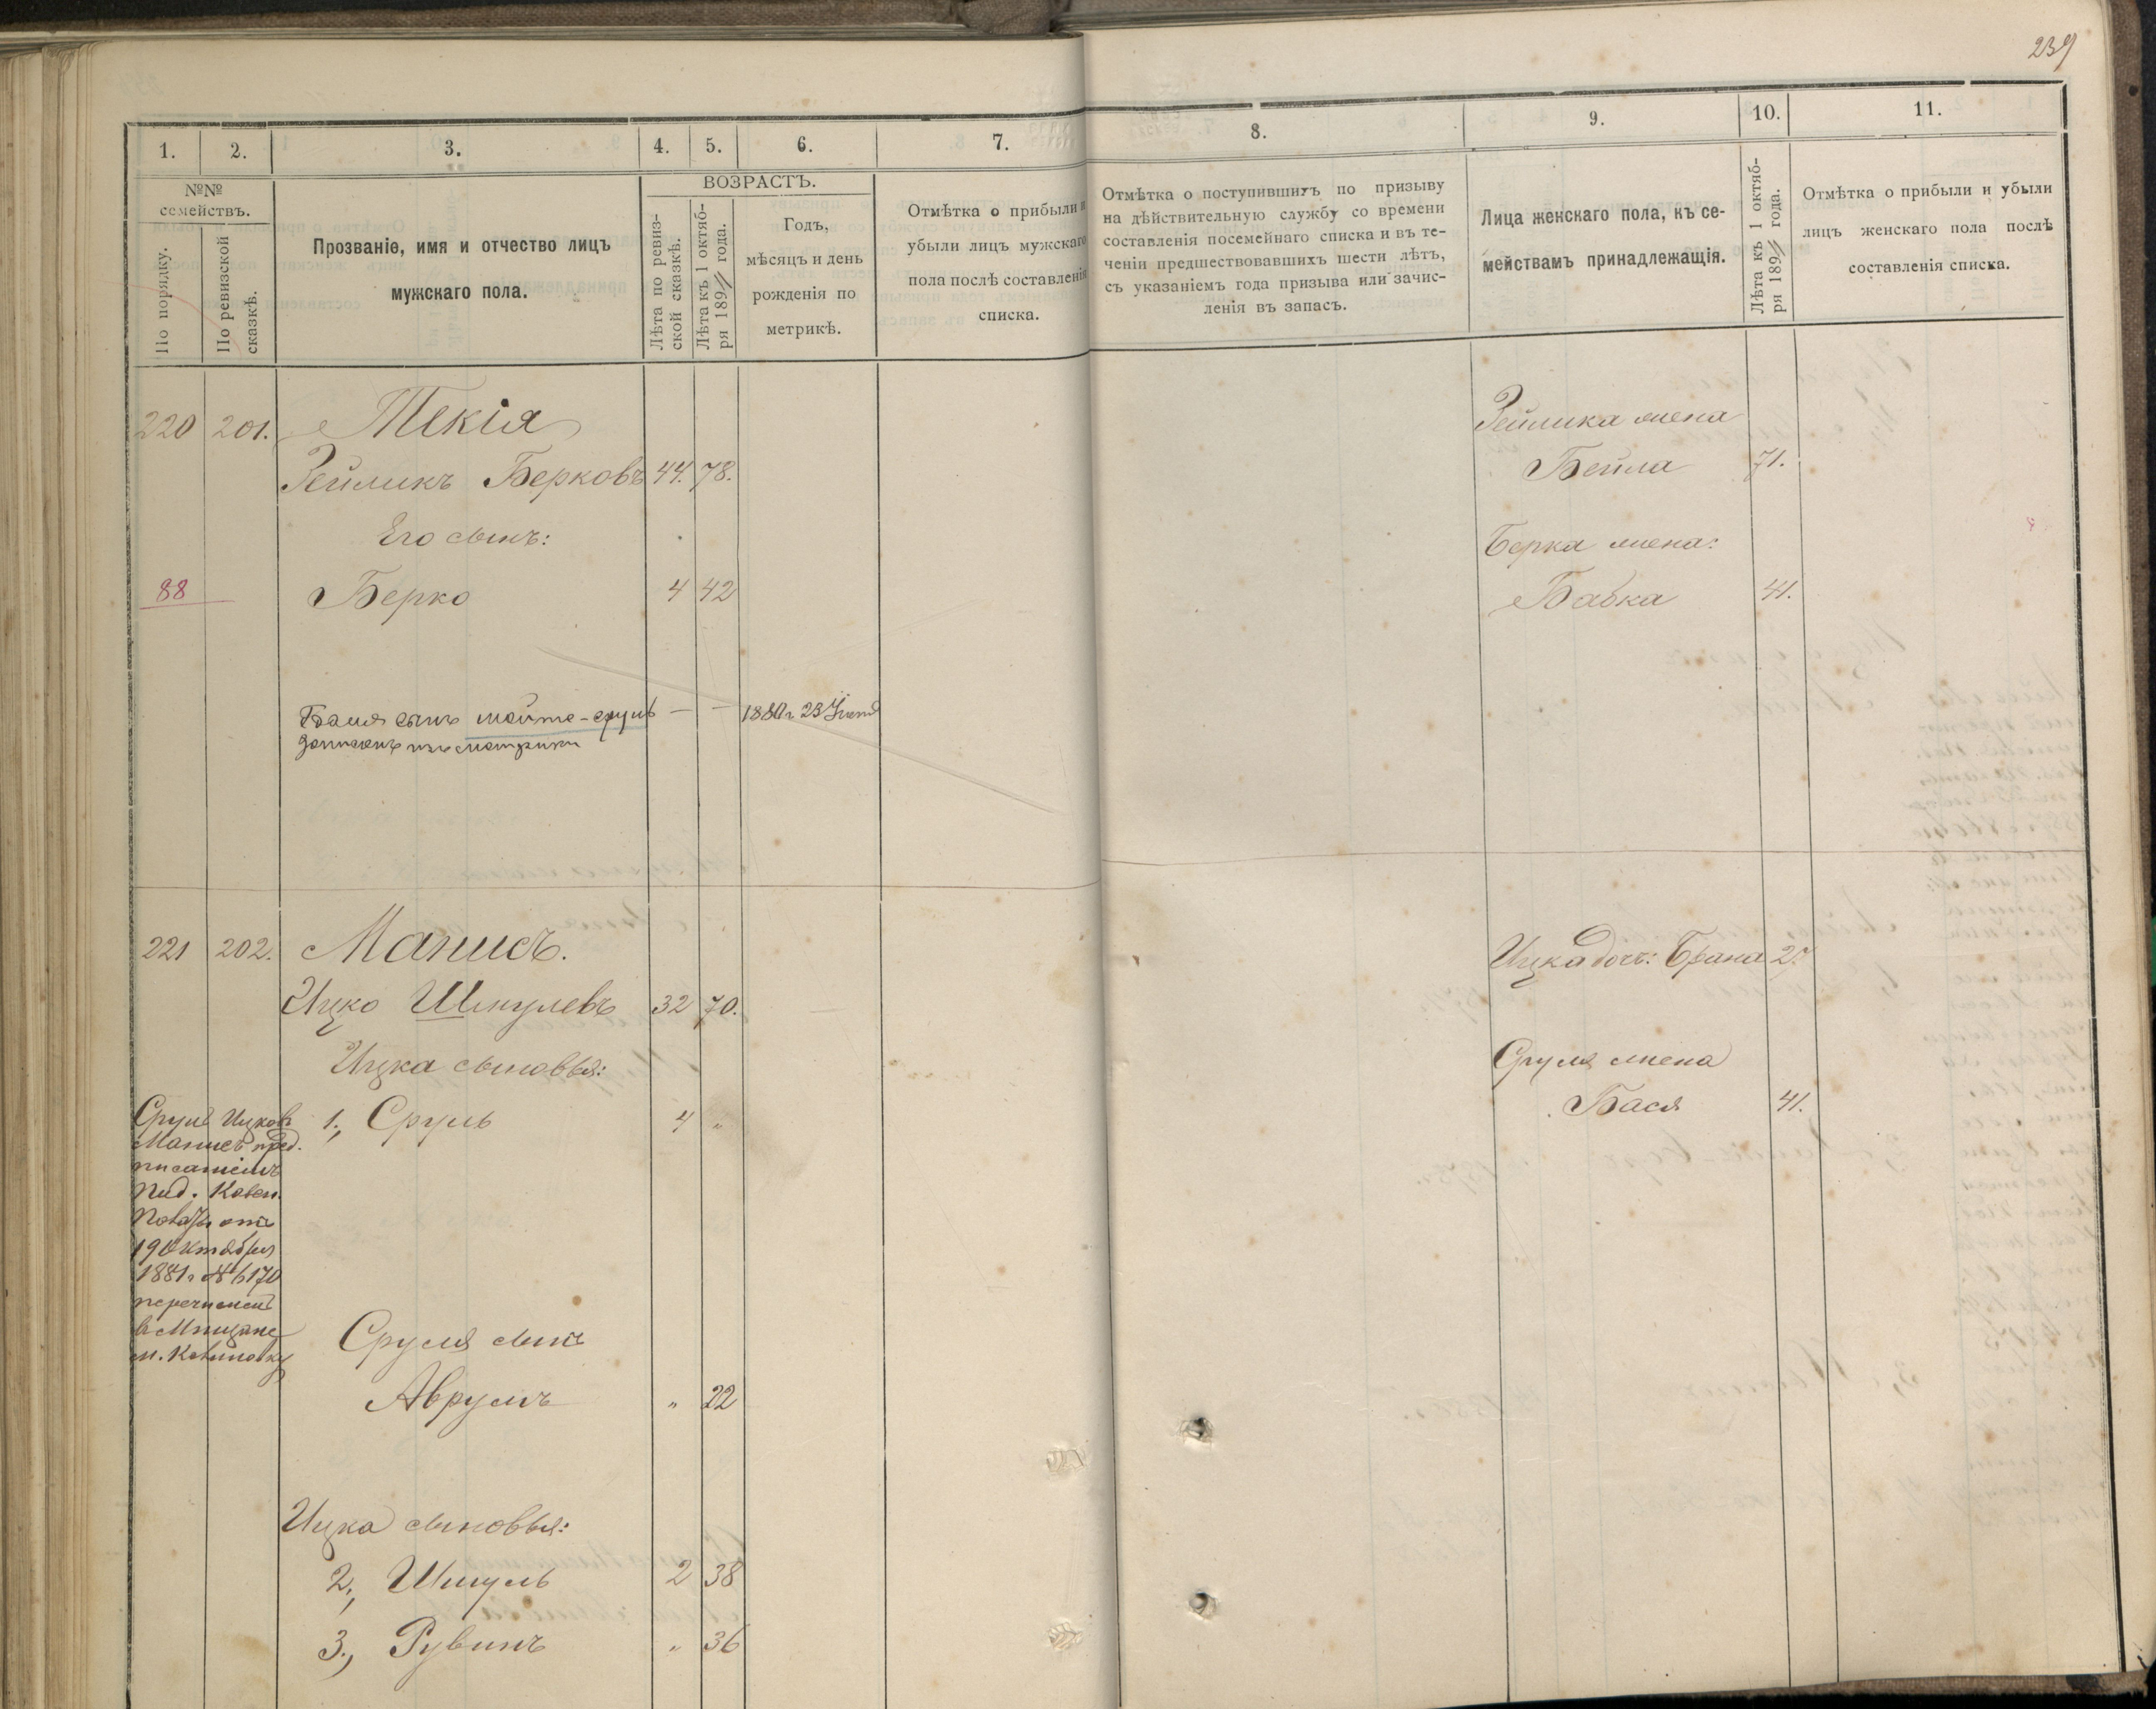 239
1. 2. 3. 4. 5. 6. 7. 8. 9. 10. 11.
№№ семействъ.
По порядку.
По ревизской сказкѣ.
Прозваніе, имя и отчество лицъ
мужскаго пола.
ВОЗРАСТЪ.
Лѣта по ревиз-
ской сказкѣ.
Лѣта къ 1 октяб-
ря 189 года.
Годъ,
мѣсяцъ и день
рожденія по
метрикѣ.
Отмѣтка о прибыли и
убыли лицъ мужскаго
пола послѣ составленія
списка.
Отмѣтка о поступившихъ по призыву
на дѣйствительную службу со времени
составленія посемейнаго списка и въ те-
ченіи предшествовавшихъ шести лѣтъ,
съ указаніемъ года призыва или зачис-
ленія въ запасъ.
Лица женскаго пола, къ се-
мействамъ принадлежащія.
Лѣта къ 1 октяб-
ря 189 года.
Отмѣтка о прибыли и убыли
лицъ женскаго пола послѣ
составленія списка.
220 201. Текія
Зейликъ Берковъ 44. 78.
Его сынъ:
88 Берко 4 42
Зейлика жена
Бейла 71.
Берка жена:
Бабка 41.
сынъ Мойше-Сруль — — 23
записанъ изъ метрики
221 202. Манисъ.
Ицко Шмулевъ 32 70.
Ицка сыновья:
1., Сруль 4 „
Сруль Ицковъ
Манисъ пред.
писаніемъ
Ковен.
отъ
19 Октября
1881 г № 6170
перечислен
в Мѣщане
Сруля сынъ
Аврумъ „ 22
Ицка сыновья:
2., Шмуль 2 38
3., Рувинъ „ 36
Ицка дочь: Брана 27
Сруля жена
Бася 41.